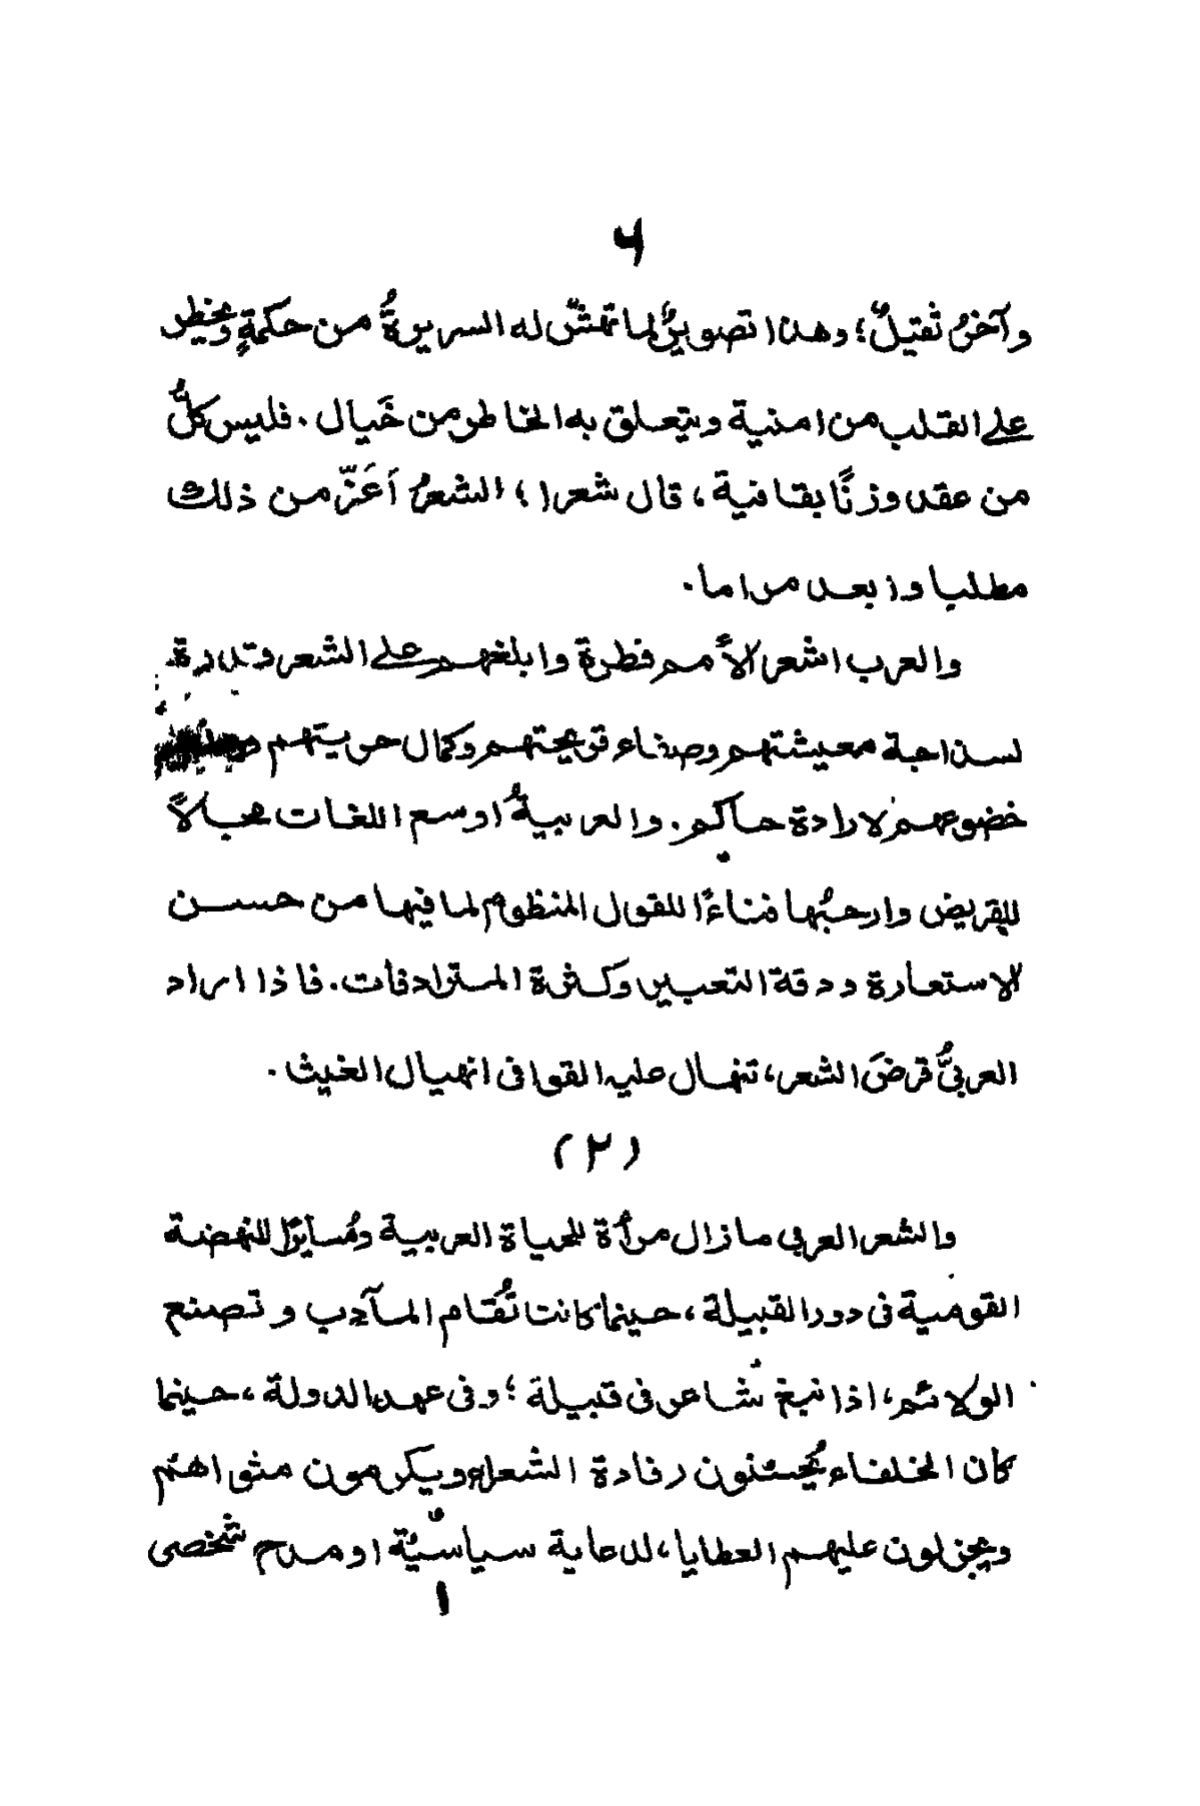 ٦
وآخرُ ثقيلٌ؛ وهذا تصويرٌ لما تهشّ له السريرةُ من حكمةٍ ويخطر
على القلب من امنية ويتعلق به الخاطر من خَيال. فليس كلُّ
من عقد وزنًا بقافية، قال شعرا؛ الشعرُ أَعَزّ من ذلك
مطلبا وابعد مراما.
والعرب اشعر الأمم فطرة وابلغهم على الشعر وتدرة
لسذاجة معيشتهم وصفاء قريحتهم وكمال حريتهم
خضوعهم لارادة حاكم. والعربيةُ اوسع اللغات مجالاً
للقريض وارحبُها فناءًا للقول المنظوم لما فيها من حسن
لاستعارة ودقة التعبير وكثرة المترادفات. فاذا اراد
العربيُّ قرضَ الشعر، تنهال عليه القوافى انهيال الغيث.
(٢)
والشعر العربي مازال مرأة للحياة العربية ومُسايرًا للنهضة
القومية فى دور القبيلة، حينما كانت تُقام المآدب وتصنع
الولائم، اذا نبغ شاعر فى قبيلة؛ وفى عهد الدولة، حينما
كان الخلفاء يُحسنون رفادة الشعراء ويكرمون مثواهم
ويجزلون عليهم العطايا، لدعاية سياسيّة او مدح شخصى
ا